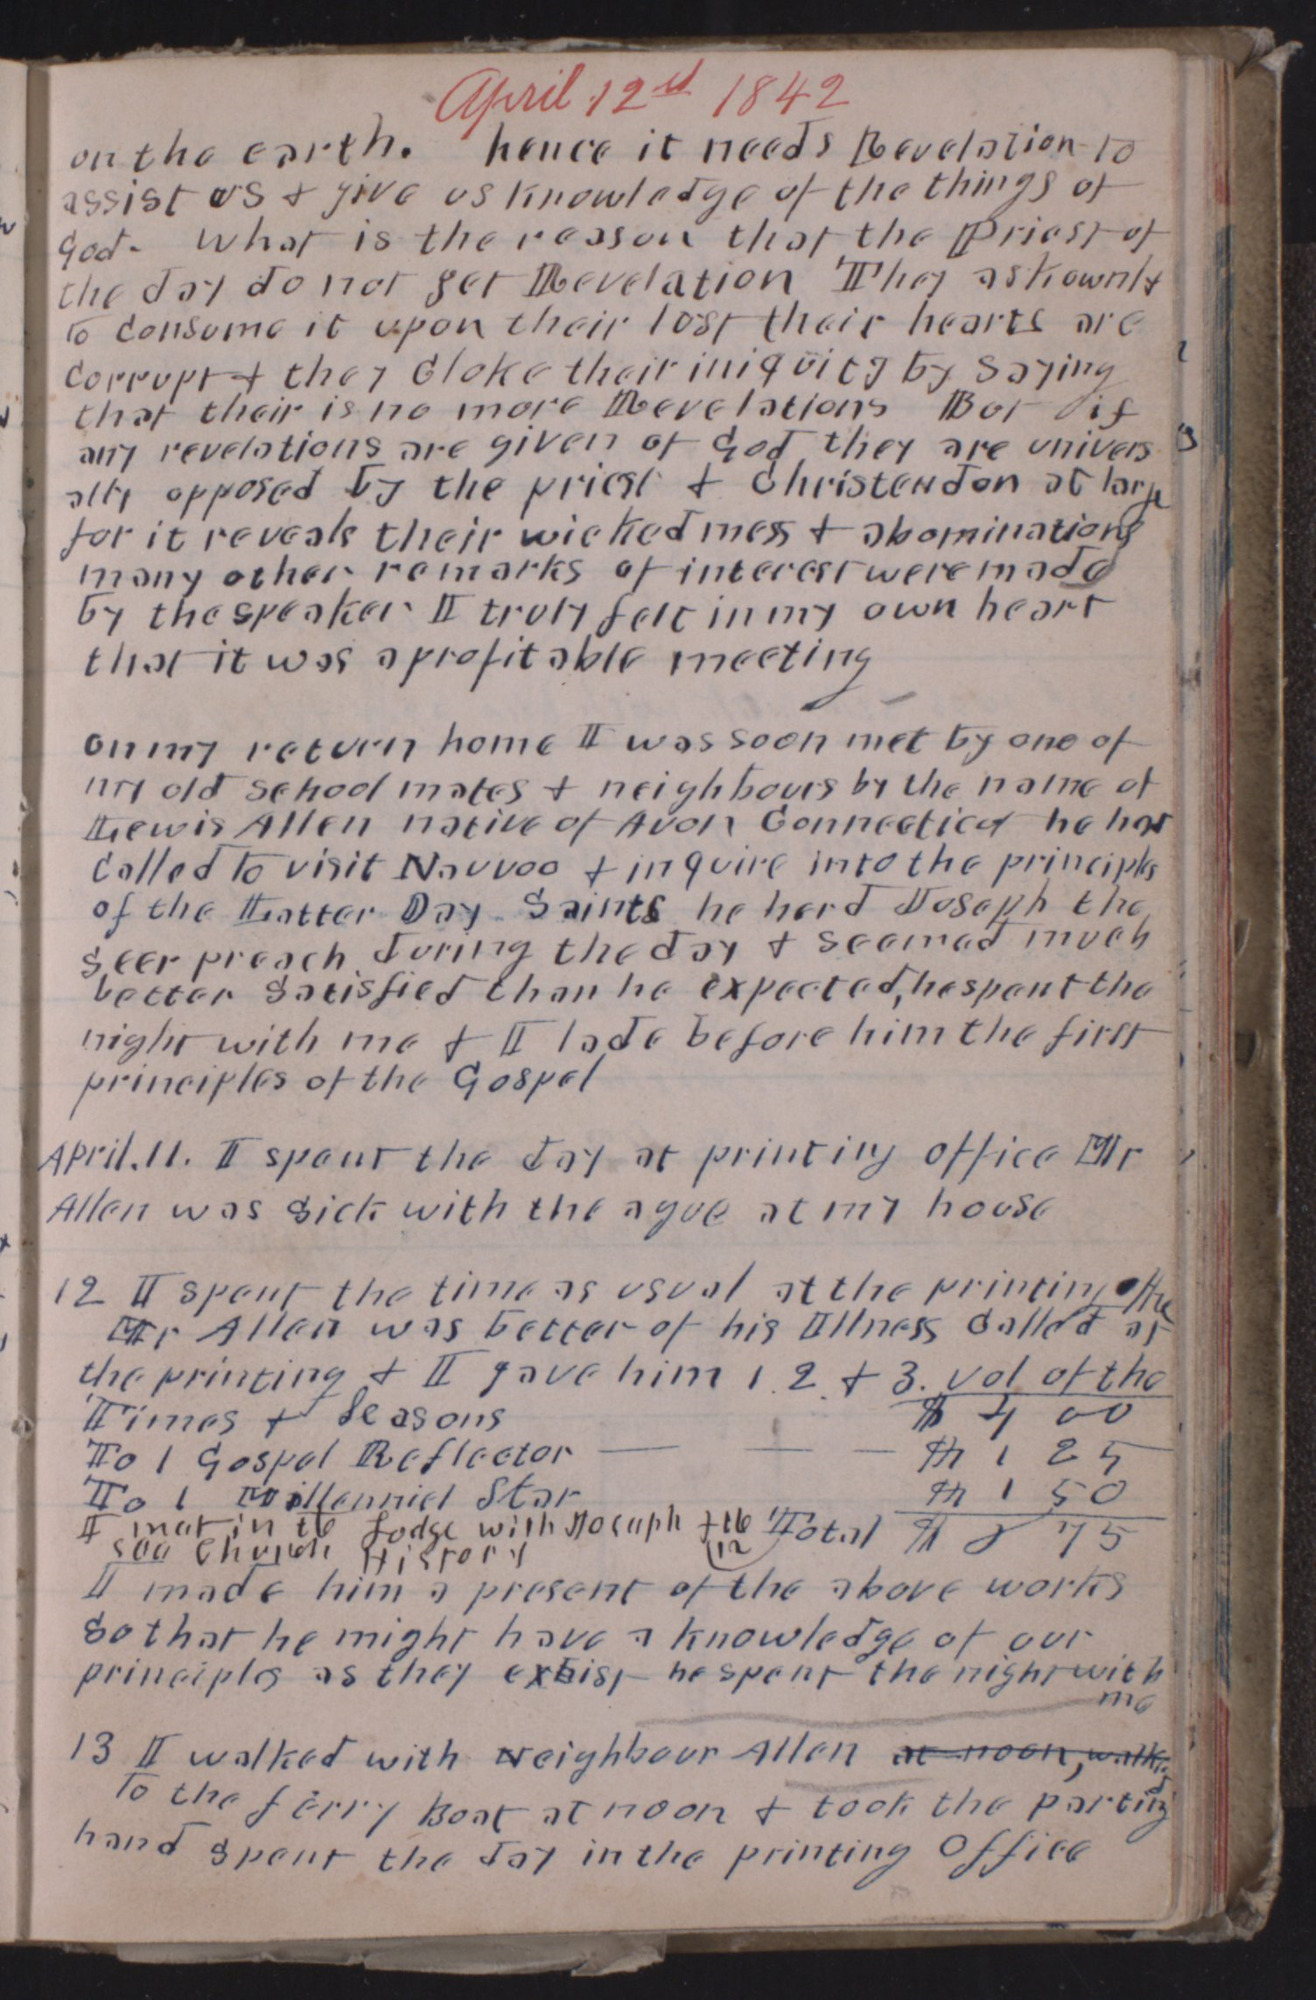 April 12d 1842
on the earth. hence it needs Revelation to
assist us & give us knowledge of the things of
God. What is the reason that the Priest of
the day do not get Revelation They ask ownly
to Consume it upon their lust their hearts are
Corrupt & they Cloke their iniquity by Saying
that their is no more Revelations But if
any revelations are given of God they are univers
ally opposed by the priest & Christendon at large
for it reveals their wickedness & abominations
many other remarks of interest were made
by the speaker I truly felt in my own heart
that it was a profitable meeting
on my return home I was soon met by one of
my old school mates & neighbours by the name of
Lewis Allen native of Avon Connecticut he had
Called to visit Nauvoo & inquire into the principles
of the Latter Day Saints he herd Joseph the
Seer preach during the day & seemed much
better Satisfied than he expected, he spent the
night with me & I lade before him the first
principles of the Gospel
April. 11. I spent the day at printing office Mr
Allen was sick with the ague at my house
12 I spent the time as usual at the printing office
Mr Allen was better of his Illness Called at
the printing & I gave him 1. 2. & 3. vol of the
Times & Seasons $ 4 00
To 1 Gospel Reflector — — — $ 1 25
To 1 Millenniel Star $ 1 50
I met in the Lodge with Joseph & the 12 Total $ 6 75
see Church History
I made him a present of the above works
So that he might have a knowledge of our
principles as they exhist he spent the night with
me
13 I walked with Neighbour Allen at noon, walked
to the ferry Boat at noon & took the parting
hand spent the day in the printing Office